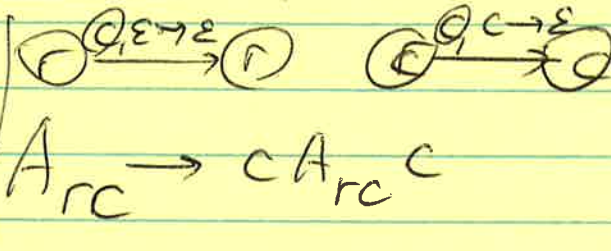 r , ε → ε r , c → ε
A_rc → c A_rc c